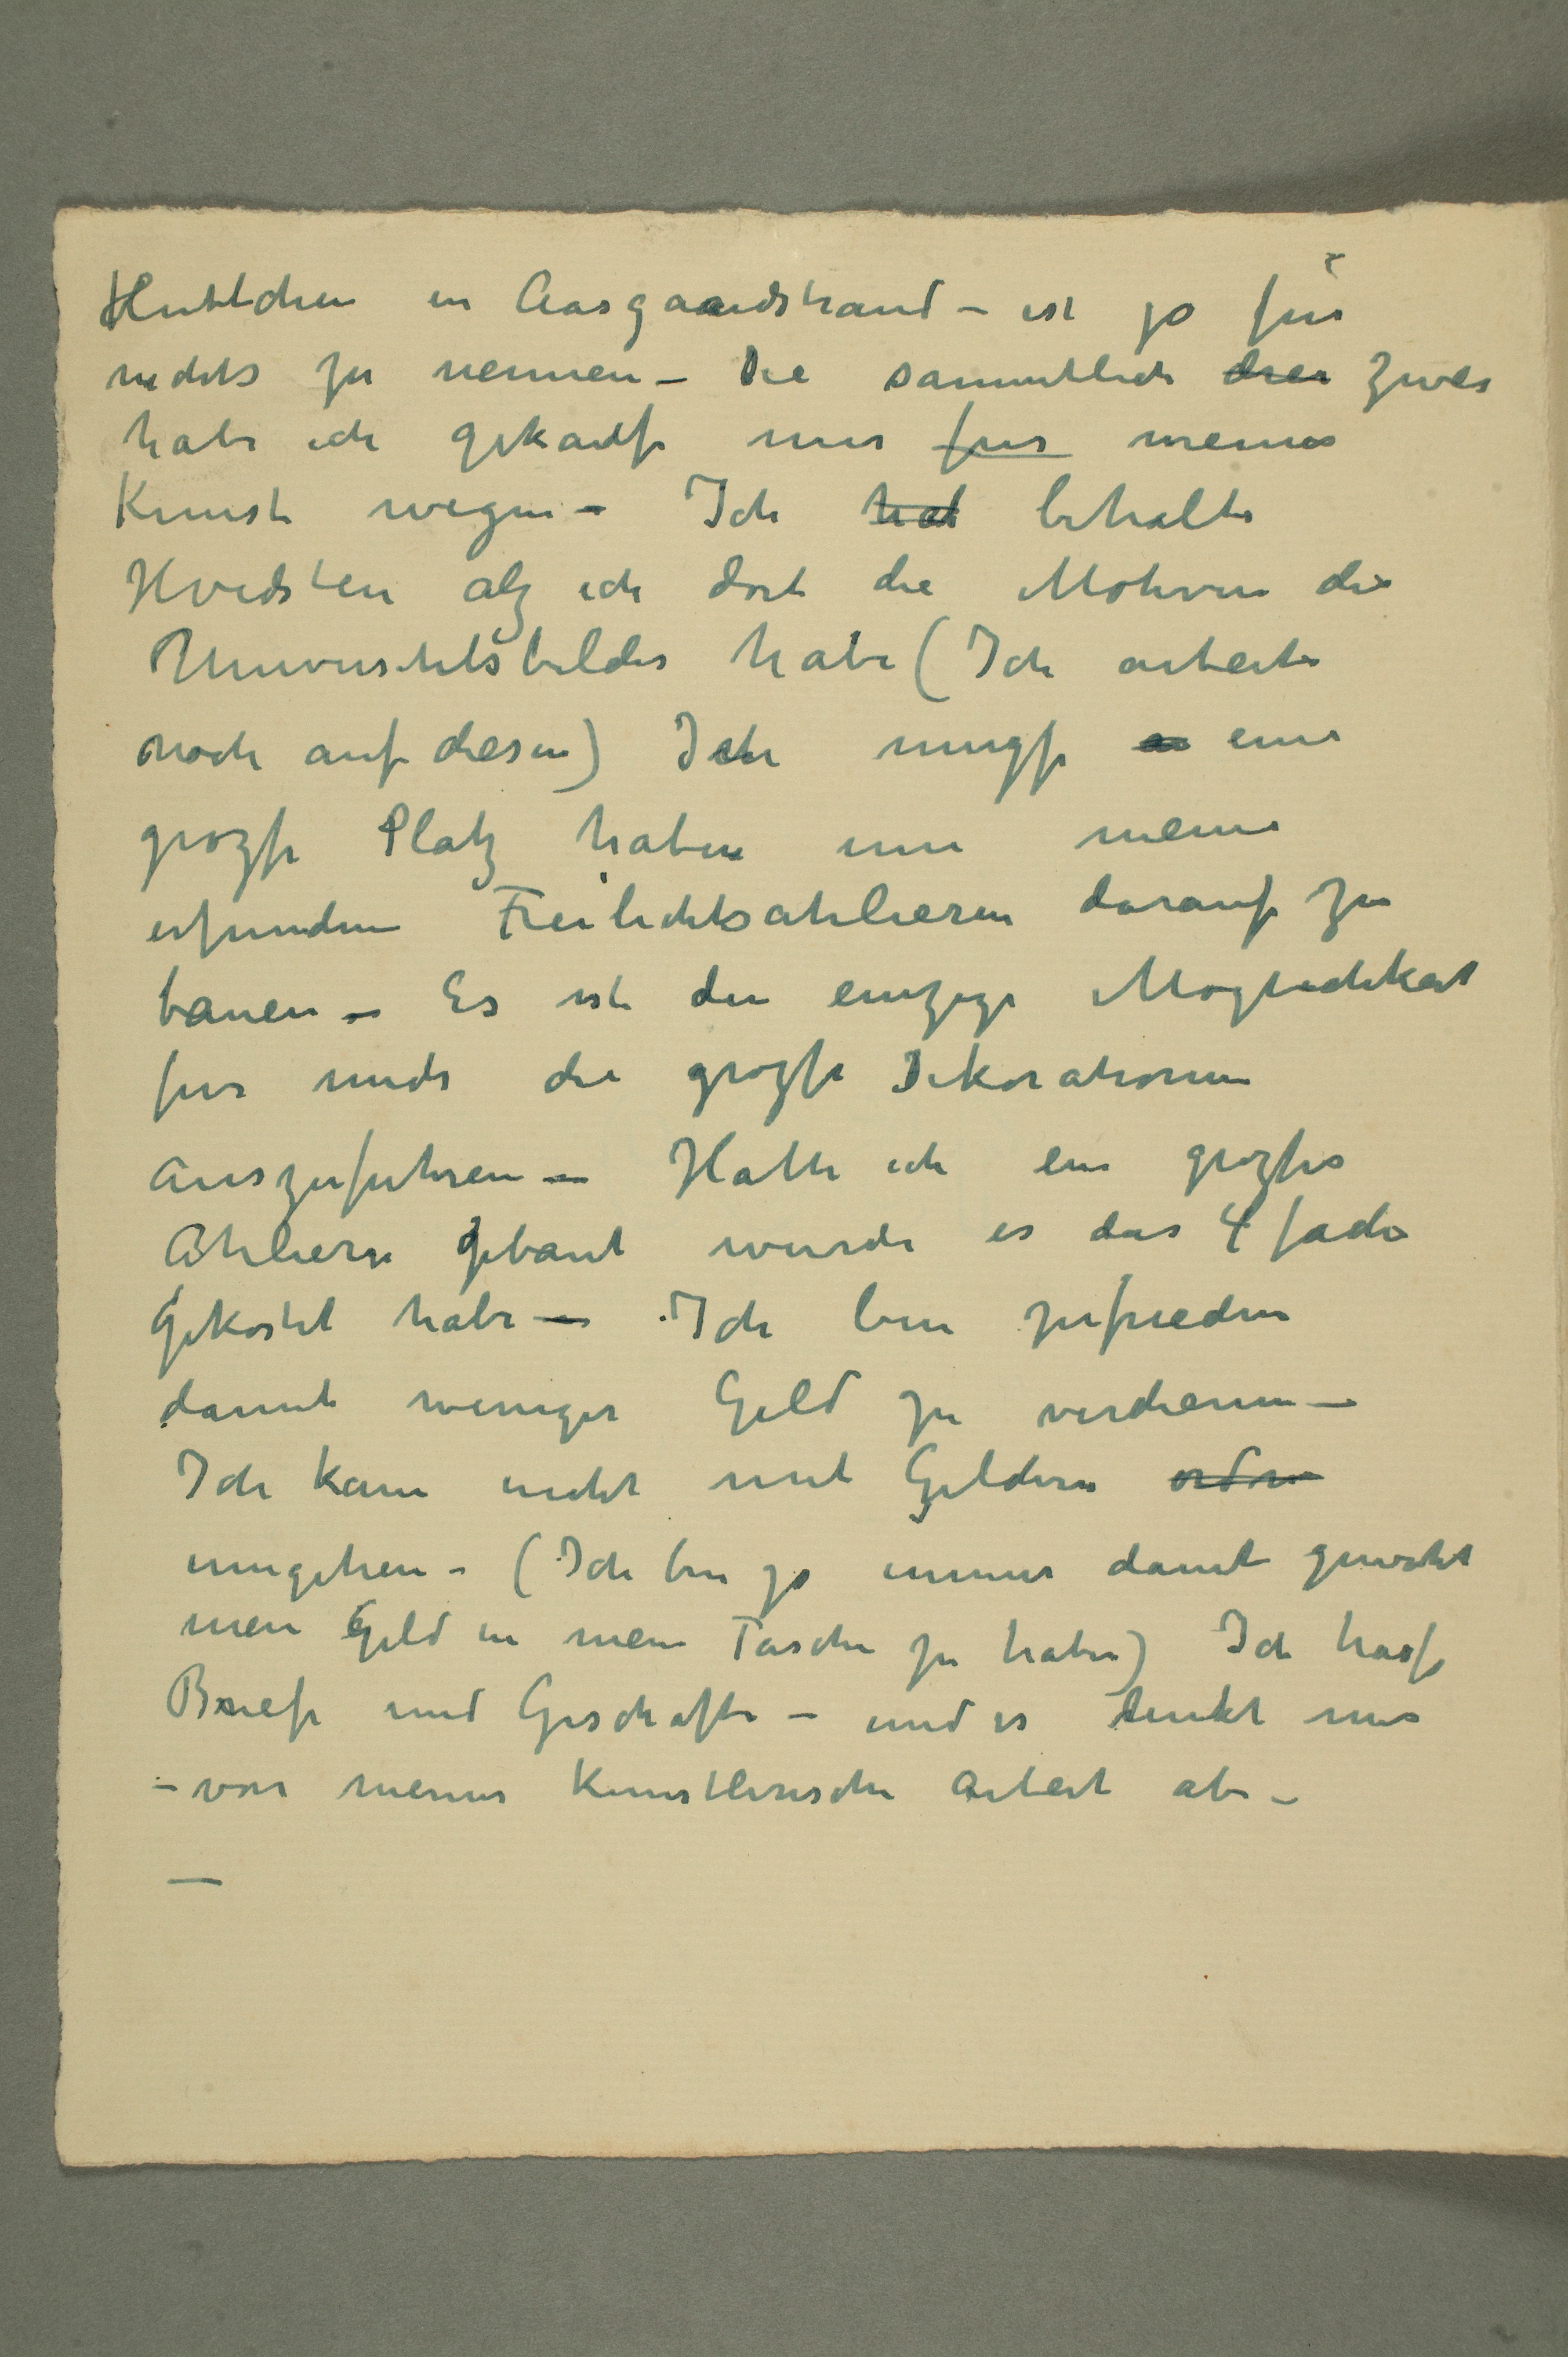 Huttchen in Aasgaardstrand – ist ja für
nichts zu nennen – Die sammtlich drei zwei
habe ich gekauft nur fur meine
Kunst wegen – Ich hab behalte
Hvidsten alz ich dort die Motiven die
Universitetsbilder habe (Ich arbeite
noch auf diesen) Ich muszs eine
groszse Platz haben um meine
erfunden Freilichtsateliéren darauf zu
bauen – Es ist die einzige Moglichkeit
fur mich die groszse Dekorationen
auszufuhren – Hatte ich ein groszses
Atelier gebaut wurde es das 4 fache
gekostet habe – Ich bin zufrieden
damit weniger Geld zu verdienen –
Ich kann nicht mit Geldern ordn
umgehen – (Ich bin ja immer damit gewohnt
mein Geld in mein Tasche zu haben) Ich hasse
Briefe und Geschafte – und es lenkt mir
– von meiner kunstlerische Arbeit ab –
—